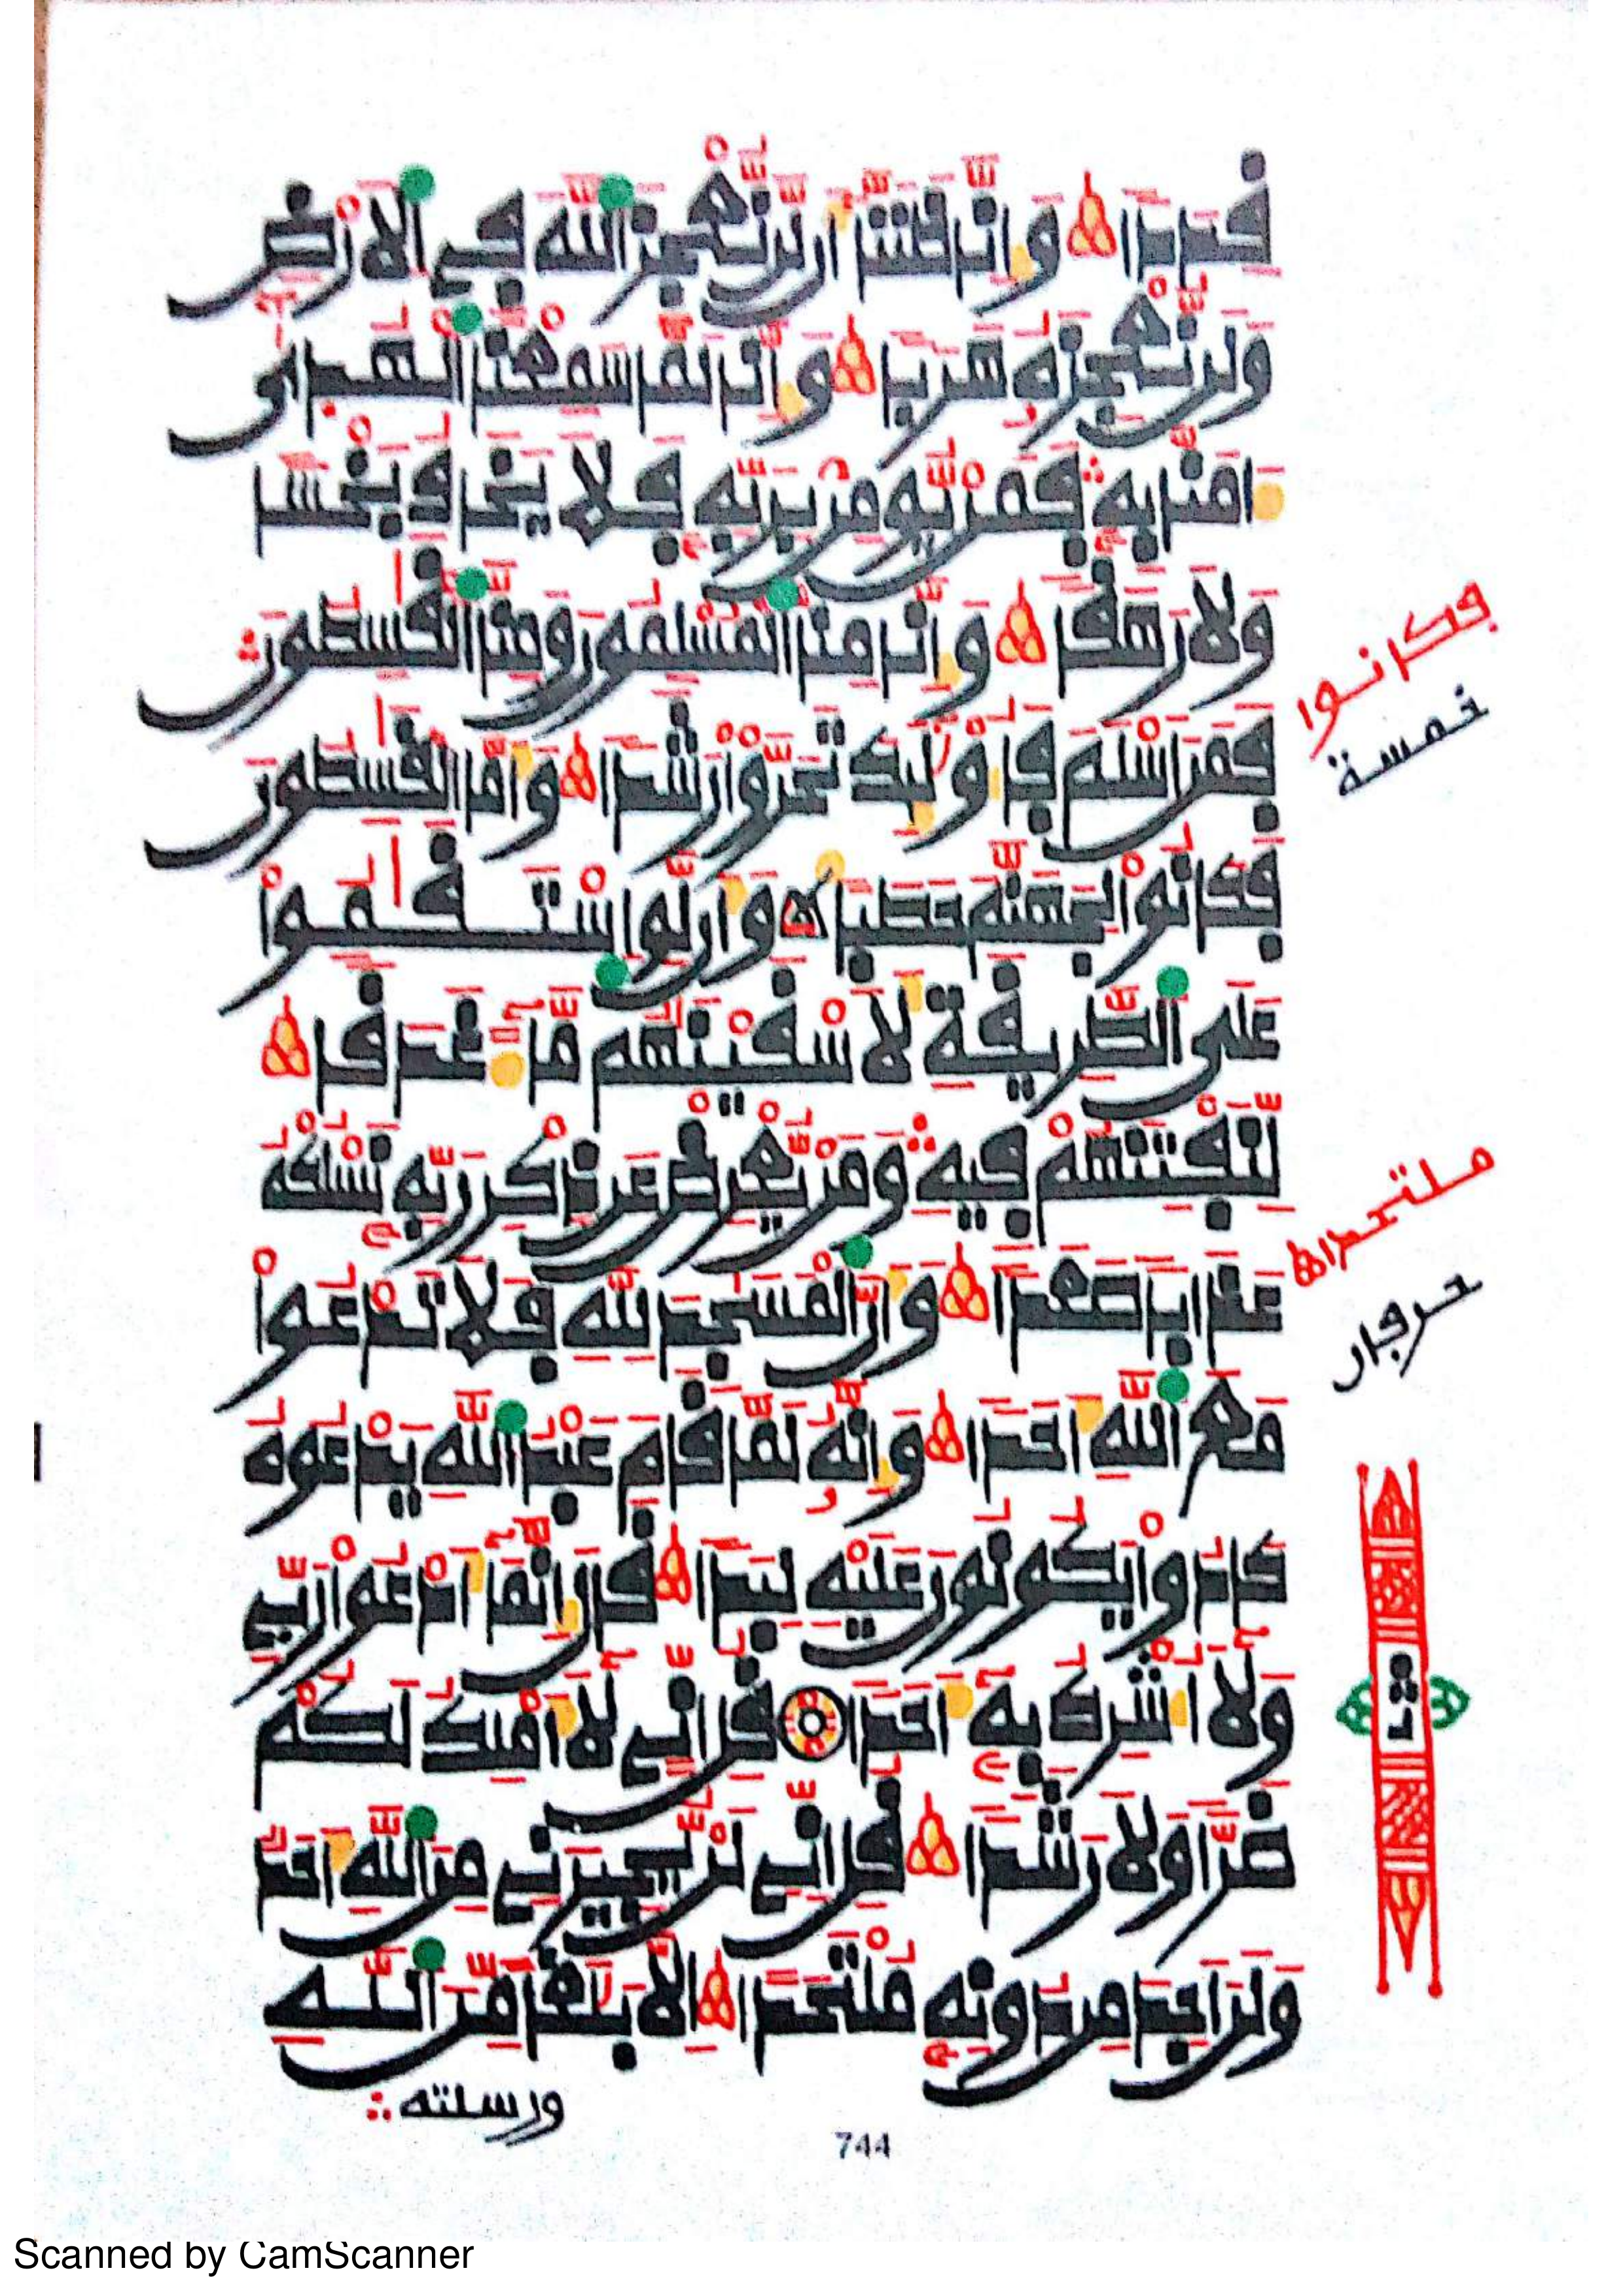 قِدَدًا وَإِنَّا ظَنَنَّا أَن لَّن نُّعْجِزَ اَللَّهَ فِي اِلَارْضِ
وَلَن نُّعْجِزَهُ هَرَبًا وَإِنَّا لَمَّا سَمِعْنَا اَلْهُدَىٰ
ءَامَنَّا بِهِ فَمَن يُّومِن بِرَبِّهِ فَلَا يَخَافُ بَخْسًا
وَلَا رَهَقًا وَإِنَّا مِنَّا اَلْمُسْلِمُونَ وَمِنَّا اَلْقَٰسِطُونَ
فَمَنَ اَسْلَمَ فَأُوْلَٰئِكَ تَحَرَّوْاْ رَشَدًا وَأَمَّا اَلْقَٰسِطُونَ
فَكَانُواْ لِجَهَنَّمَ حَطَبًا وَأَن لَّوِ اِسْتَقَٰمُواْ
عَلَى اَلطَّرِيقَةِ لَأَسْقَيْنَٰهُم مَّآءً غَدَقًا
لِّنَفْتِنَهُمْ فِيهِ وَمَن يُّعْرِضْ عَن ذِكْرِ رَبِّهِ نَسْلُكْهُ
عَذَابًا صَعَدًا وَأَنَّ اَلْمَسَٰجِدَ لِلَّهِ فَلَا تَدْعُواْ
مَعَ اَللَّهِ أَحَدًا وَإِنَّهُ لَمَّا قَامَ عَبْدُ اُللَّهِ يَدْعُوهُ
كَادُواْ يَكُونُونَ عَلَيْهِ لِبَدًا قَالَ إِنَّمَآ أَدْعُواْ رَبِّي
وَلَآ أُشْرِكُ بِهِ أَحَدًا قُلِ اِنِّي لَآ أَمْلِكُ لَكُمْ
ضَرًّا وَلَا رَشَدًا قُلِ اِنِّي لَن يُّجِيرَنِي مِنَ اَللَّهِ أَحَدٌ
وَلَنَ اَجِدَ مِن دُونِهِ مُلْتَحَدًا إِلَّا بَلَٰغًا مِّنَ اَللَّهِ
ورسلته
فكانوا
خمسة
ملتحدا
حرفان
ثمن
744
Scanned by CamScanner